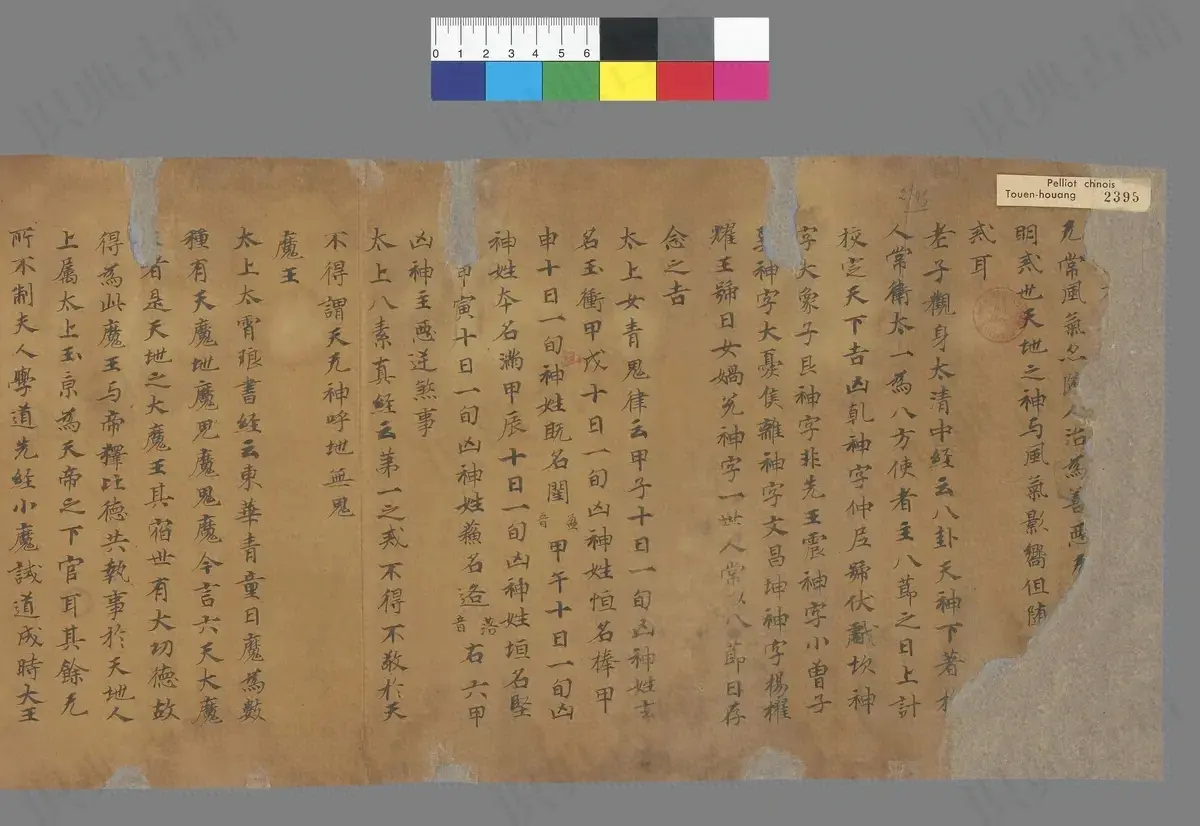 Pelliot chinois
Touen-houang 2395
0 1 2 3 4 5 6
无常風氣忽隨人治為善惡
明或世天地之神与風氣影嚮但隨
或耳
老子觀身太清中經云八卦天神下著
人常衛太一為八方使者主八節之日上計
挍定天下吉凶乹神字仲尼号伏羲坎神
字大象子艮神字非先王震神字小曾子
巽神字大憂侯離神字文昌坤神字楊擢
耀王号曰女媧兊神字一世人常以八節日存
念之吉
太上女青鬼律云甲子十日一旬凶神姓
名玉衝甲戌十日一旬凶神姓恒名棒甲
申十日一旬神姓既名閏音 甲午十日一旬凶
神姓夲名滿甲辰十日一旬凶神姓垣名堅
甲寅十日一旬凶神姓 名 落音右六甲
凶神主惡逆煞事
太上八素真經云第一之或不得不敬於天
不得謂天无神呼地無鬼
魔王
太上太霄琅書經云東華青童曰魔為數
種有天魔地魔鬼魔鬼魔今言六天大魔
者是天地之大魔王其宿世有大功德故
得為此魔王与帝釋比德共執事於天地人
上属太上玉京為天帝之下官耳其餘无
所不制夫人學道先經小魔試道成時大王